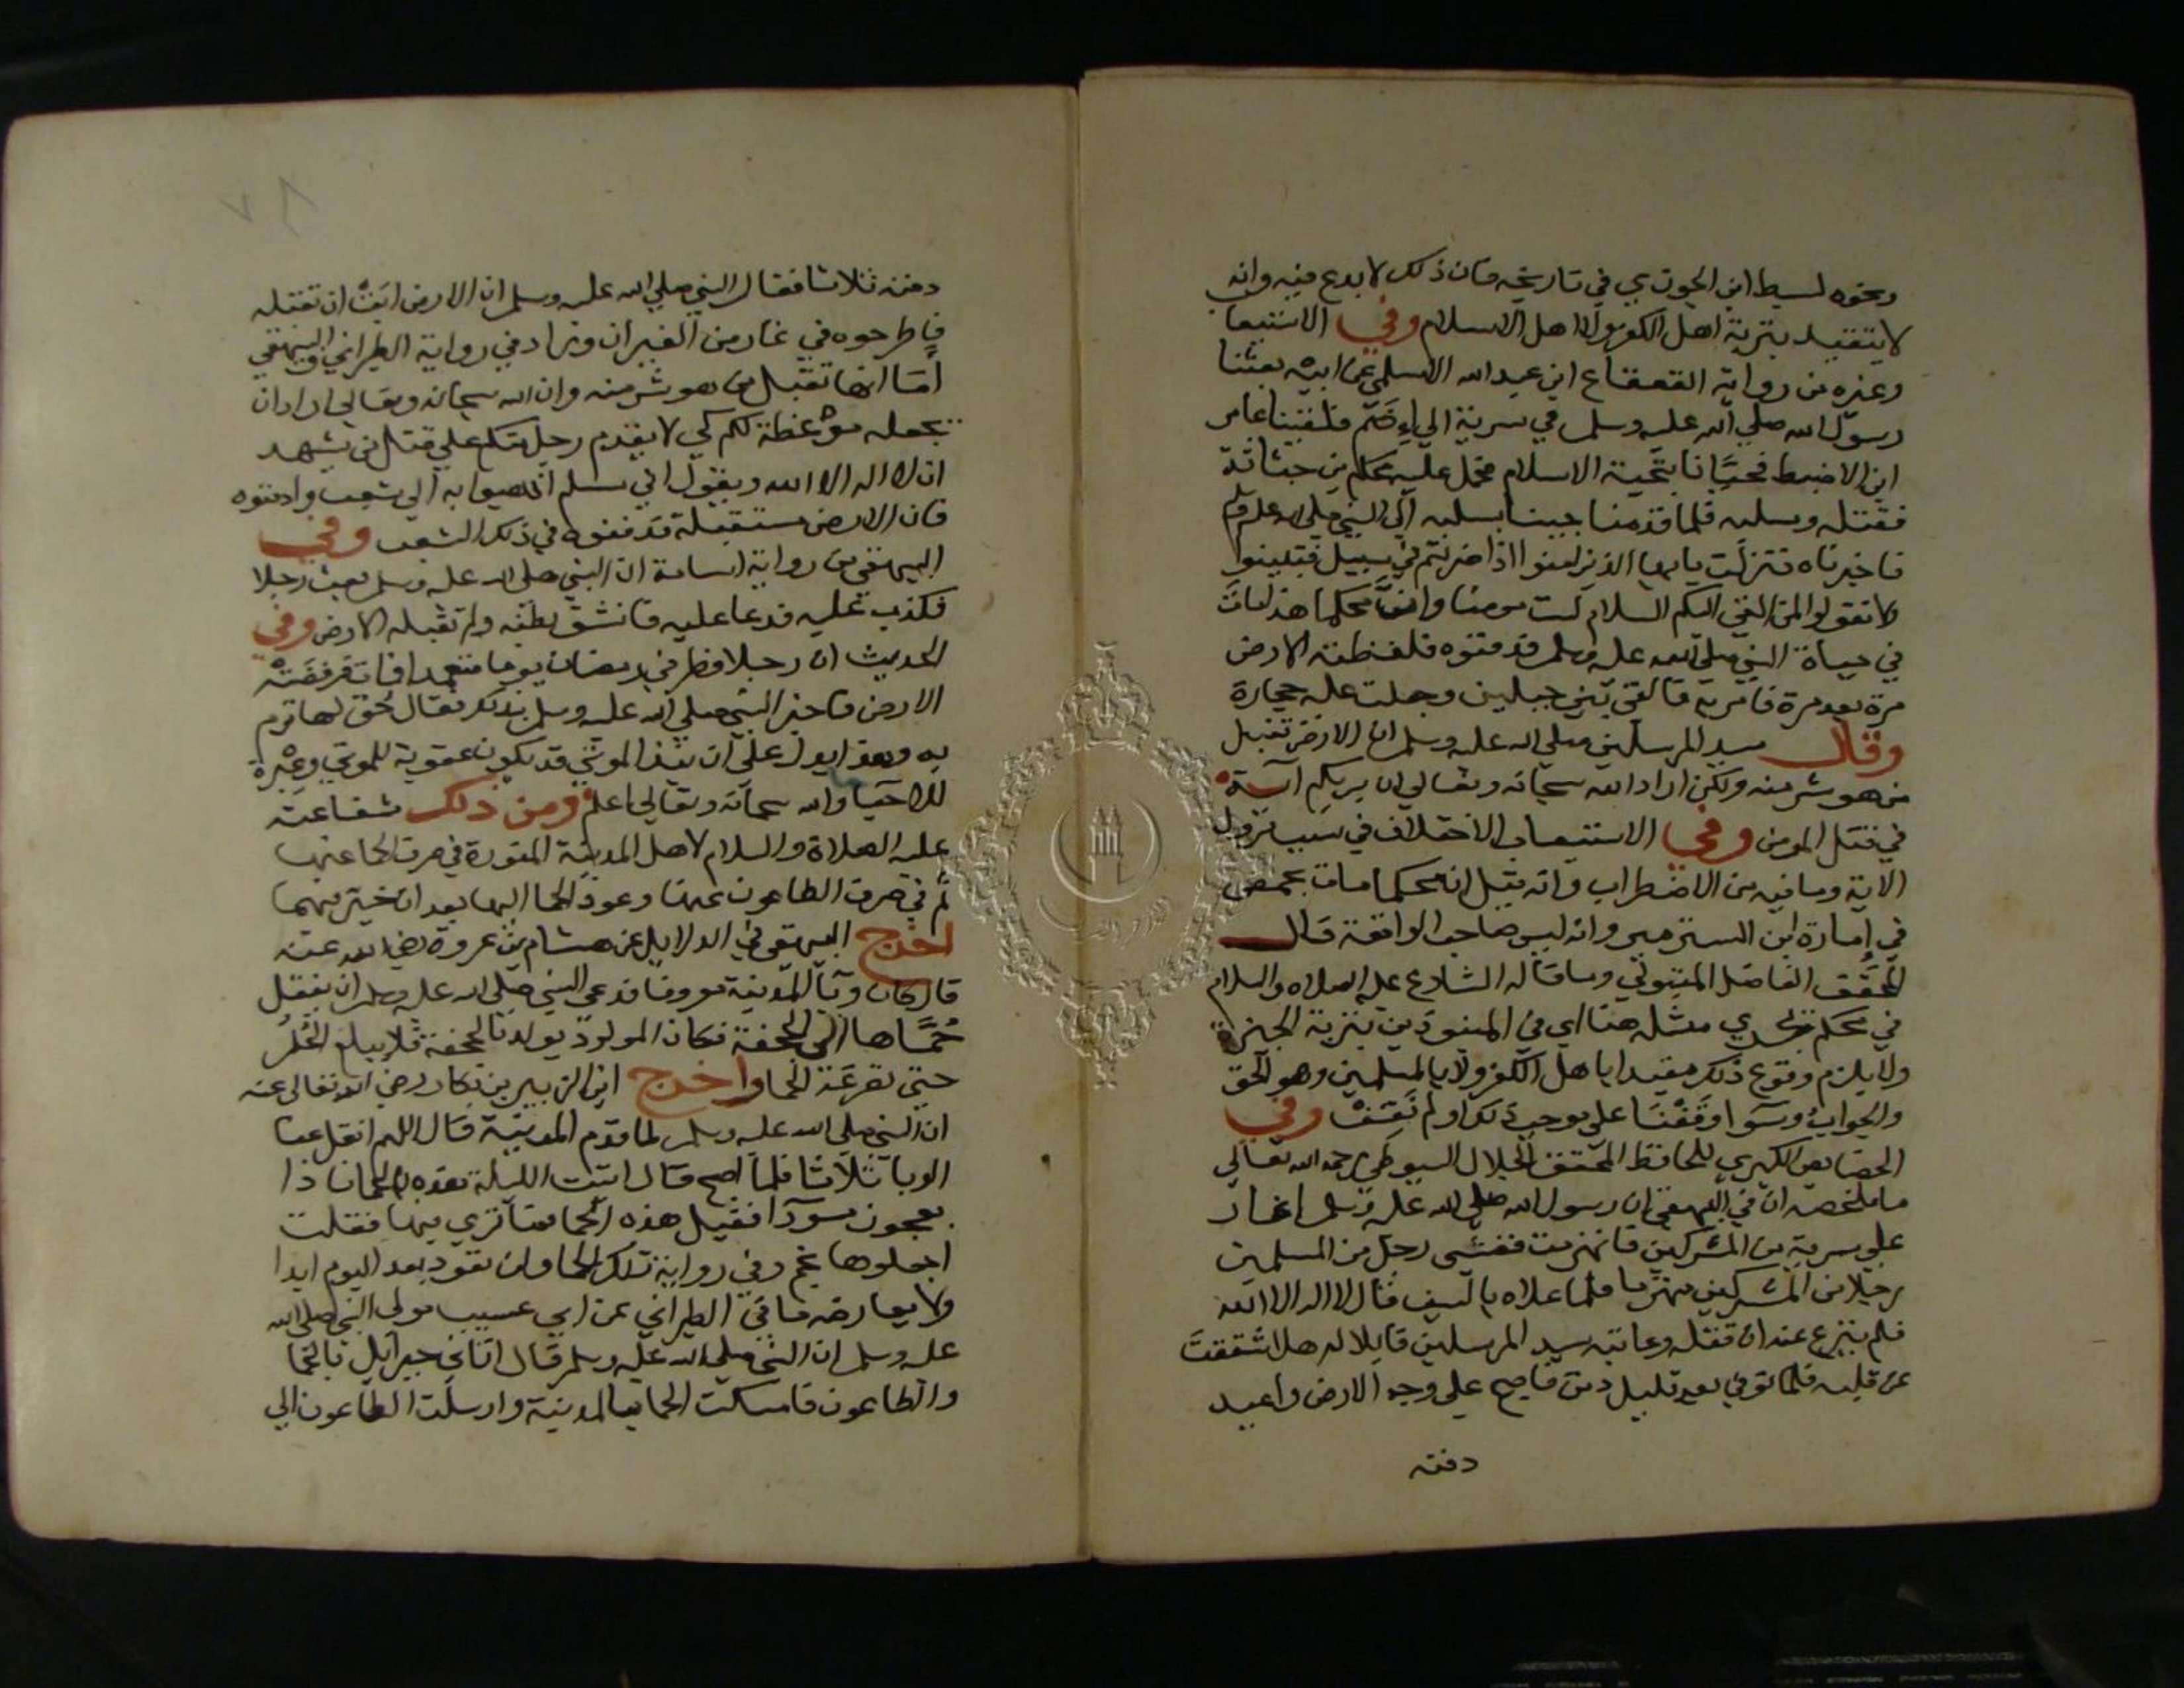 ونحوه لسبط ابن الجوزي في تاريخه فان ذلك لا بدع فيه وانه
لا يتقيد بتربة اهل الكفر ولا اهل الاسلام وفي الاستيعاب
وغيره من رواية القعقاع ابن عبد الله الاسلمي عن ابيه بعثنا
رسول الله صلي الله عليه وسلم في سرية الي اضم فلقينا عامر
ابن الاضبط فحيانا بتحية الاسلام فحمل عليه محكم بن جثامة
فقتله وسلبه فلما قدمنا جينا بسلبه الي النبي صلي الله عليه وسلم
فاخبرناه فنزلت يايها الذين امنوا اذا ضربتم في سبيل فتبينوا
ولا تقولوا لمن القي اليكم السلام لست مومنا وان محكما هذا مات
في حياة النبي صلي الله عليه وسلم فدفنوه فلفظته الارض
مرة بعد مرة فامر به فالقي بين جبلين وجعلت عليه حجارة
وقال سيد المرسلين صلي الله عليه وسلم ان الارض تقبل
من هو شر منه ولكن اراد الله سبحانه وتعالي ان يريكم آية
في قتل المومن وفي الاستيعاب الاختلاف في سبب نزول
الاية وما فيه من الاضطراب وانه يقبل ان محكما مات بحمص
في امارة ابن الزبير وانه ليس صاحب الواقعة قال
المحقق الفاضل المتبولي وما قاله الشارع عليه الصلاه والسلام
في محكم يجري مثله هنا اي في المنبوذين بتربة الجيزة
ولا يلزم وقوع ذلك مقيدا باهل الكفر ولا بالمسلمين وهو الحق
والجواب وسوا وقفنا علي موجب ذلك او لم نقف وفي
الخصايص الكبري للحافظ المحقق الجلال السيوطي رحمه الله تعالي
ما ملخصه ان في البيهقي ان رسول الله صلي الله عليه وسلم اغار
علي سرية من المشركين فانهزمت فغشي رجل من المسلمين
رجلا من المشركين منهزما فلما علاه بالسيف قال لا اله الا الله
فلم ينزع عنه ان قتله وعاتبه سيد المرسلين قايلا له هلا شققت
عن قلبه فلما توفي بعد قليل دفن فاصبح علي وجه الارض واعيد
دفنه
دفنه ثلاثا فقال النبي صلي الله عليه وسلم ان الارض ابت ان تقتله
فاطرحوه في غار من الغيران وزاد في رواية الطبراني والبيهقي
اما انها تقبل من هو شر منه وان الله سبحانه وتعالي اراد ان
يجعله موعظة لكم كي لا يقدم رجل منكم علي قتل من يشهد
ان لا اله الا الله ويقول اني مسلم اذهبوا به الي شعب وادفنوه
فان الارض ستقبله فدفنوه في ذلك الشعب وفي
البيهقي من رواية اسامة ان النبي صلي الله عليه وسلم بعث رجلا
فكذب عليه فدعا عليه فانشق بطنه ولم تقبله الارض وفي
الحديث ان رجلا فطر في رمضان يوما متعمدا فمات فرفضته
الارض فاخبر النبي صلي الله عليه وسلم بذلك فقال حق لها توم
به وهذا يدل علي ان نبذ الموتي قد يكون عقوبة للموتي وعبرة
للاحيا والله سبحانه وتعالي اعلم ومن ذلك شفاعته
عليه الصلاة والسلام لاهل المدينة المنورة في صرف الحما عنها
ثم في صرف الطاعون عنها وعود الحما اليها بعد ان خير فيهما
اخرج البيهقي في الدلايل عن هشام بن عروة رضي الله عنه
قال كان وبا المدينة معروفا فدعي النبي صلي الله عليه وسلم ان ينقل
حماها الي الجحفة فكان المولود يولد بالجحفة فلا يبلغ الحلم
حتي تصرعه الحما واخرج ابن الزبير بن بكار رضي الله تعالي عنه
ان النبي صلي الله عليه وسلم لما قدم المدينة قال اللهم انقل عنا
الوبا ثلاثا فلما اصبح قال اتيت الليلة بهذه الحما فاذا
بعجوز سودا فقيل هذه الحما فما تري فيها فقلت
اجعلوها بخم وفي رواية تلك الحما ولن تعود بعد اليوم ابدا
ولا يعارضه ما في الطبراني عن ابي عسيب مولي النبي صلي الله
عليه وسلم ان النبي صلي الله عليه وسلم قال اتاني جبرايل بالحما
والطاعون فامسكت الحما بالمدينة وارسلت الطاعون الي